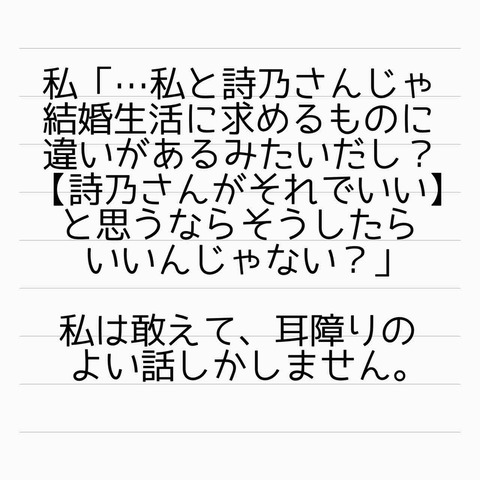 私「…私と詩乃さんじゃ
結婚生活に求めるものに
違いがあるみたいだし？
【詩乃さんがそれでいい】
と思うならそうしたら
いいんじゃない？」
私は敢えて、耳障りの
よい話しかしません。